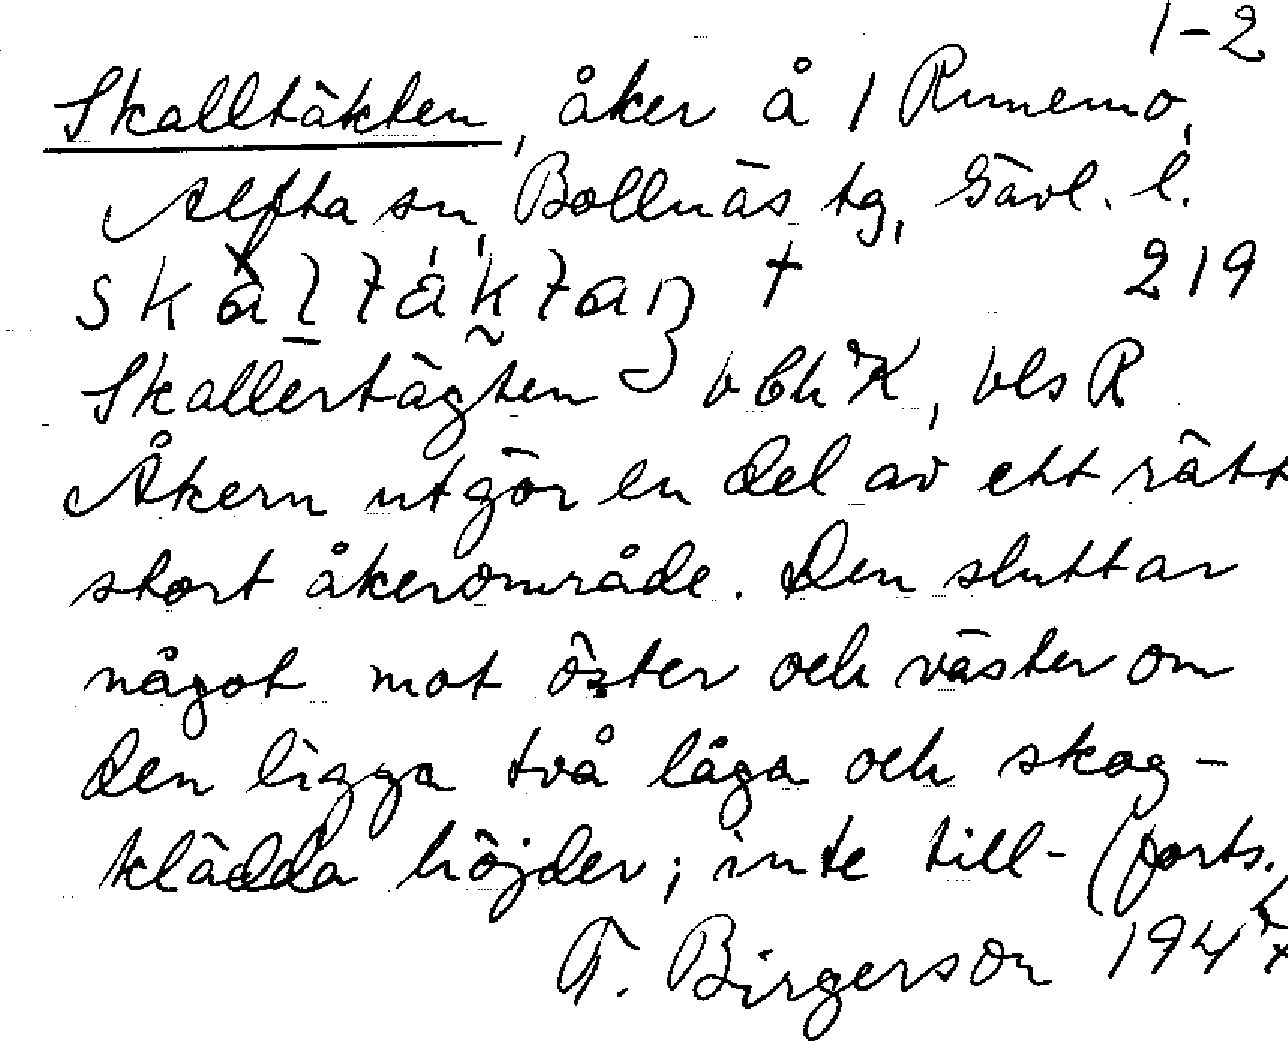 1-2
Skalltäkten, åker å 1 Runemo,
Alfta sn, Bollnäs tg, Gävl. l.
219
Skallertägten vbh K, vls R
Åkern utgör en del av ett rätt
stort åkerområde. Den sluttar
något mot öster och väster om
den ligga två låga och skog-
klädda höjder; inte till- (forts.
T. Birgerson 194